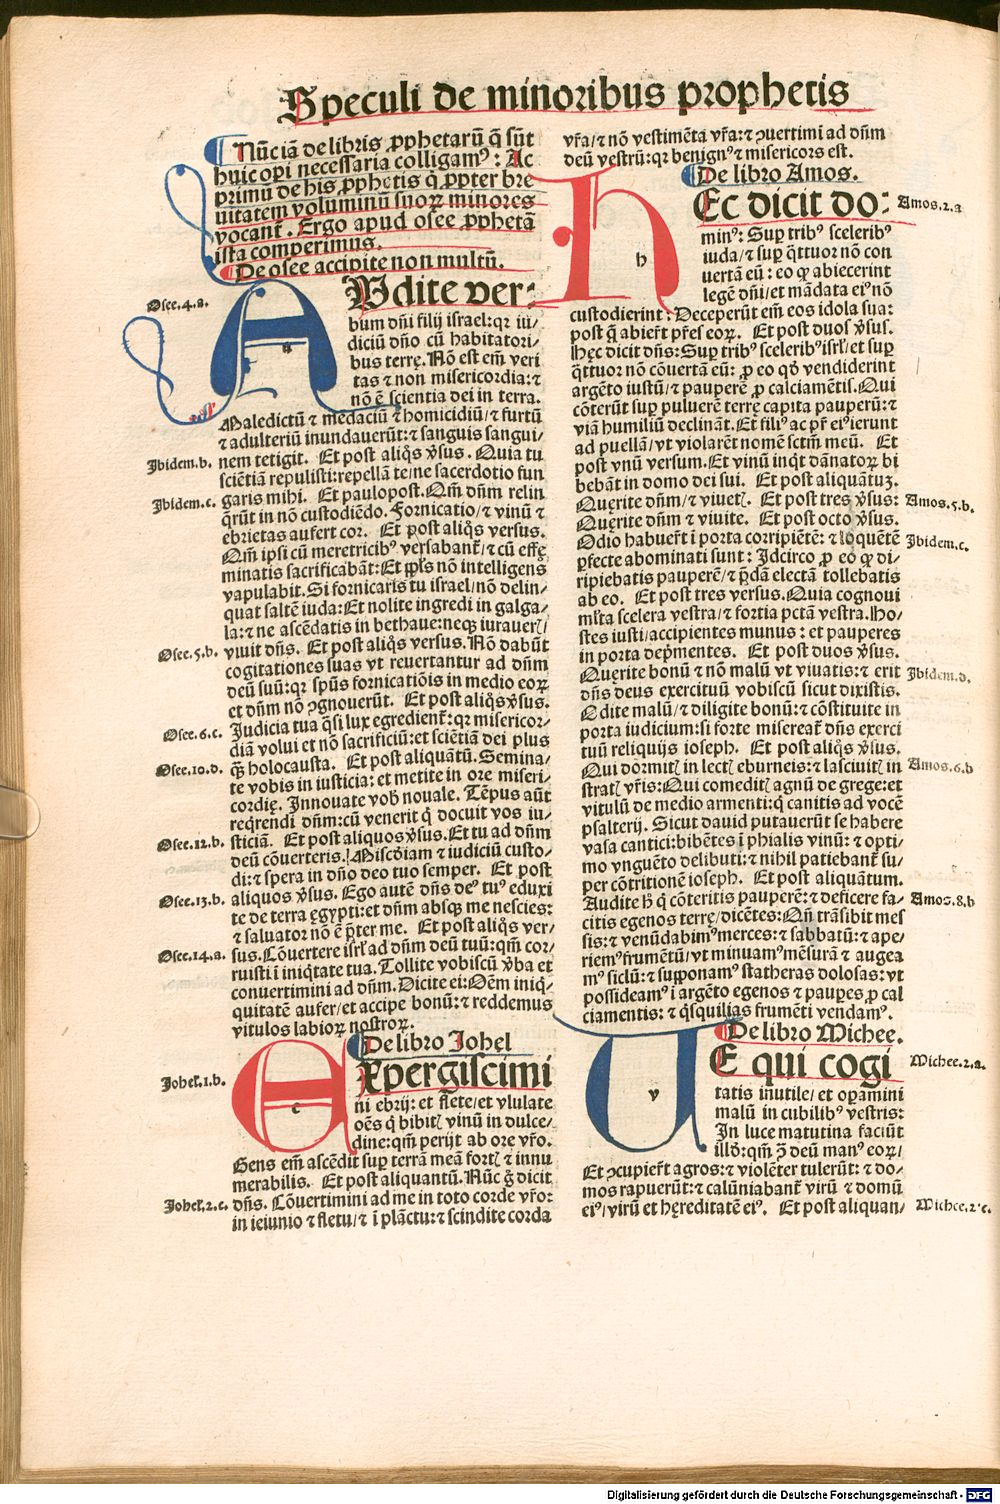 Speculi de minoribus prophetis
Nūc iā de libris ꝓphetarū q̄ sūt
huic opi necessaria colligamꝰ: Ac
primū de his ꝓphetis q̄ ꝓpter bre
uitatem voluminū suoꝝ minores
vocant̄. Ergo apud osee ꝓphetā
ista comperimus.
De osee accipite non multū.
Osee.4.a.
AVdite ver-
bum dn̄i filij israel: qꝛ iu/
diciū dn̄o cū habitatori/
bus terrę. Nō est em̄ veri
tas ⁊ non misericordia: ⁊
nō ē scientia dei in terra.
Maledictū ⁊ mēdaciū ⁊ homicidiū/ ⁊ furtū
⁊ adulteriū inundauerūt: ⁊ sanguis sangui/
Ibidem.b.
nem tetigit. Et post aliq̄s v̄sus. Quia tu
sciētiā repulisti: repellā te/ ne sacerdotio fun
Ibidem.c.
garis mihi. Et paulo post. Qm̄ dn̄m relin
q̄rūt in nō custodiēdo. Fornicatio/ ⁊ vinū ⁊
ebrietas aufert cor. Et post aliq̄s versus.
Qm̄ ipsi cū meretricibꝰ versabant̄/ ⁊ cū effę
minatis sacrificabāt: Et ppl̄s nō intelligens
vapulabit. Si fornicaris tu israel/ nō delin/
quat saltē iuda: Et nolite ingredi in galga/
la: ⁊ ne ascēdatis in bethaue: neqꝫ iuraueri/
Osee.5.b.
viuit dn̄s. Et post aliq̄s versus. Nō dabūt
cogitationes suas vt reuertantur ad dn̄m
deū suū: qꝛ spūs fornicatiōis in medio eoꝝ
et dn̄m nō ꝯgnouerūt. Et post aliq̄s v̄sus.
Osee.6.c.
Judicia tua q̄si lux egredient̄: qꝛ misericor/
diā volui et nō sacrificiū: et sciētiā dei plus
Osee.10.d.
q̄ꝫ holocausta. Et post aliquātū. Semina/
te vobis in iusticia: et metite in ore miseri/
cordię. Innouate vob̄ nouale. Tēpus aūt
reqrendi dn̄m: cū venerit q̄ docuit vos iu/
Osee.12.b.
sticiā. Et post aliquos v̄sus. Et tu ad dn̄m
deū cōuerteris. Misc̄diam ⁊ iudiciū custo/
di: ⁊ spera in dn̄o deo tuo semper. Et post
Osee.13.b.
aliquos v̄sus. Ego autē dn̄s deꝰ tuꝰ eduxi
te de terra ęgypti: et dn̄m absqꝫ me nescies:
⁊ saluator nō ē p̄ter me. Et post aliq̄s ver/
Osee.14.a.
sus. Cōuertere isrl̄ ad dn̄m deū tuū: qm̄ cor/
ruisti ī iniq̄tate tua. Tollite vobiscū v̄ba et
conuertimini ad dn̄m. Dicite ei: Oēm iniq̄/
quitatē aufer/ et accipe bonū: ⁊ reddemus
vitulos labioꝝ nostroꝝ.
De libro Johel
Johel̄.1.b.
EXpergiscimi
ni ebrij: et flete/ et vlulate
oēs q̄ bibitꝭ vinū in dulce/
dine: qm̄ perijt ab ore vr̄o.
Gens em̄ ascēdit sup terrā meā fortꝭ ⁊ innu
merabilis. Et post aliquantū. Nūc g̊ dicit
Johel̄.2.c.
dn̄s. Cōuertimini ad me in toto corde vr̄o:
in ieiunio ⁊ fletu/ ⁊ ī plāctu: ⁊ scindite corda
vr̄a/ ⁊ nō vestimēta vr̄a: ⁊ ꝯuertimi ad dn̄m
deū vestrū: qꝛ benignꝰ ⁊ misericors est.
De libro Amos.
Amos.2.a
HEc dicit do:
minꝰ: Sup tribꝰ sceleribꝰ
iuda/ ⁊ sup q̄ttuor nō con
uertā eū: eo ꝙ abiecerint
legē dn̄i/ et mādata eiꝰ nō
custodierint: Deceperūt em̄ eos idola sua:
post q̄ abiert̄ pr̄es eoꝝ. Et post duos v̄sus.
Hęc dicit dn̄s: Sup tribꝰ sceleribꝰ isrl̄/ et sup
q̄ttuor nō cōuertā eū: ꝓ eo qꝙ vendiderint
argēto iustū/ ⁊ pauperē ꝓ calciamētis. Qui
cōterūt sup puluerē terrę capita pauperū: ⁊
viā humiliū declināt. Et filiꝰ ac pr̄ eiꝰ ierunt
ad puellā/ vt violarēt nomē sctm̄ meū. Et
post vnū versum. Et vinū inq̄t dānatoꝝ bi
bebāt in domo dei sui. Et post aliquātuꝫ.
Amos.5.b.
Quęrite dn̄m/ ⁊ viuetꝭ. Et post tres v̄sus:
Quęrite dn̄m ⁊ viuite. Et post octo v̄sus.
Ibidem.c.
Odio habuert̄ ī porta corripiētē: ⁊ loquētē
ꝑfecte abominati sunt: Idcirco ꝓ eo ꝙ di/
ripiebatis pauperē/ ⁊ p̄dā electā tollebatis
ab eo. Et post tres versus. Quia cognoui
ml̄ta scelera vestra/ ⁊ fortia pctā vestra. Ho/
stes iusti/ accipientes munus: et pauperes
in porta dep̄mentes. Et post duos v̄sus.
Ibidem.d.
Quęrite bonū ⁊ nō malū vt viuatis: ⁊ erit
dn̄s deus exercituū vobiscū sicut dixistis.
Odite malū/ ⁊ diligite bonū: ⁊ cōstituite in
porta iudicium: si forte misereat̄ dn̄s exerci
tuū reliquijs ioseph. Et post aliq̄s v̄sus.
Amos.6.b
Qui dormitꝭ in lectꝭ eburneis: ⁊ lasciuitꝭ in
stratꝭ vr̄is: Qui comeditꝭ agnū de grege: et
vitulū de medio armenti: q̄ canitis ad vocē
psalterij. Sicut dauid putauerūt se habere
vasa cantici: bibētes ī phialis vinū: ⁊ opti/
mo vnguēto delibuti: ⁊ nihil patiebant̄ su/
per cōtritionē ioseph. Et post aliquātum.
Amos.8.b
Audite h̄ q̄ cōteritis pauperē: ⁊ deficere fa/
citis egenos terrę/ dicētes: Qn̄ trāsibit mes
sis: ⁊ venūdabimꝰ merces: ⁊ sabbatū: ⁊ ape/
riemꝰ frumētū/ vt minuamꝰ mēsurā ⁊ augea
mꝰ siclū: ⁊ supponamꝰ statheras dolosas: vt
possideamꝰ ī argēto egenos ⁊ paupes ꝓ cal
ciamentis: ⁊ q̄squilias frumēti vendamꝰ.
De libro Michee.
Michee.2.a.
VE qui cogi
tatis inutile/ et opamini
malū in cubilibꝰ vestris:
In luce matutina faciūt
illd̄: qm̄ ꝯ̄ deū manꝰ eoꝝ/
Et ꝯcupiert̄ agros: ⁊ violēter tulerūt: ⁊ do/
mos rapuerūt: ⁊ calūniabant̄ virū ⁊ domū
Michee.2.c.
eiꝰ/ virū et hęreditatē eiꝰ. Et post aliquan/
Digitalisierung gefördert durch die Deutsche Forschungsgemeinschaft - DFG